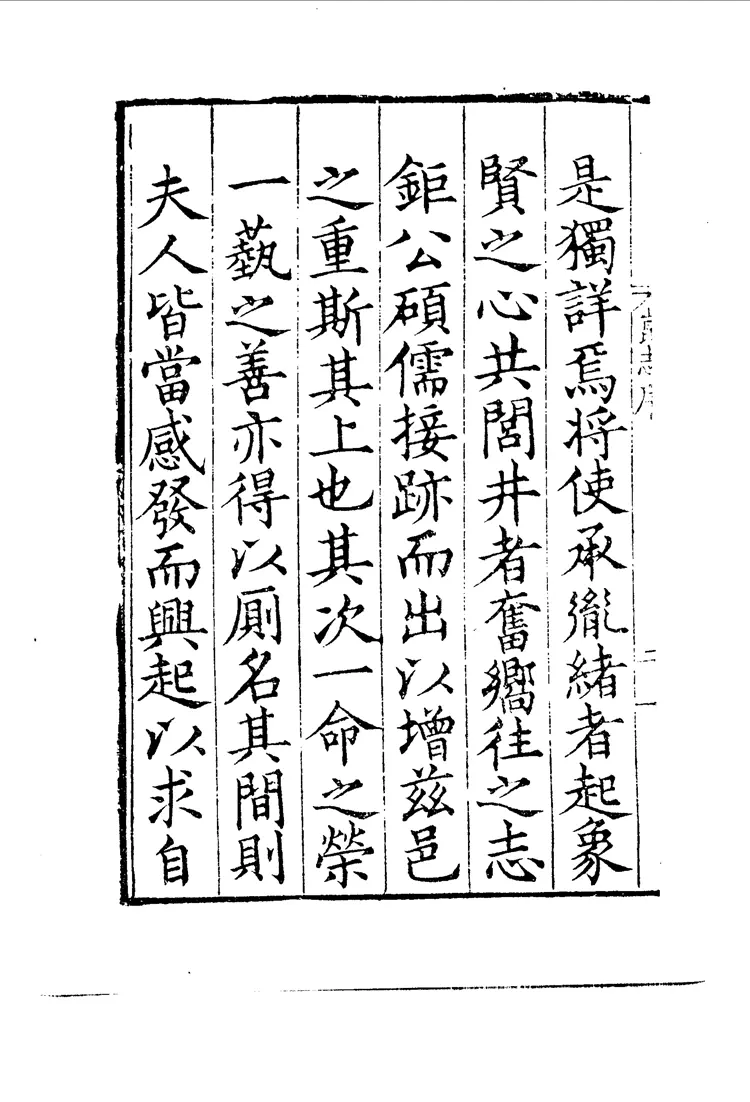 是獨詳焉將使承胤緒者起象
賢之心共閭井者奮嚮往之志
鉅公碩儒接跡而出以增茲邑
之重斯其上也其次一命之榮
一藝之善亦得以厠名其間則
夫人皆當感發而興起以求自
志序